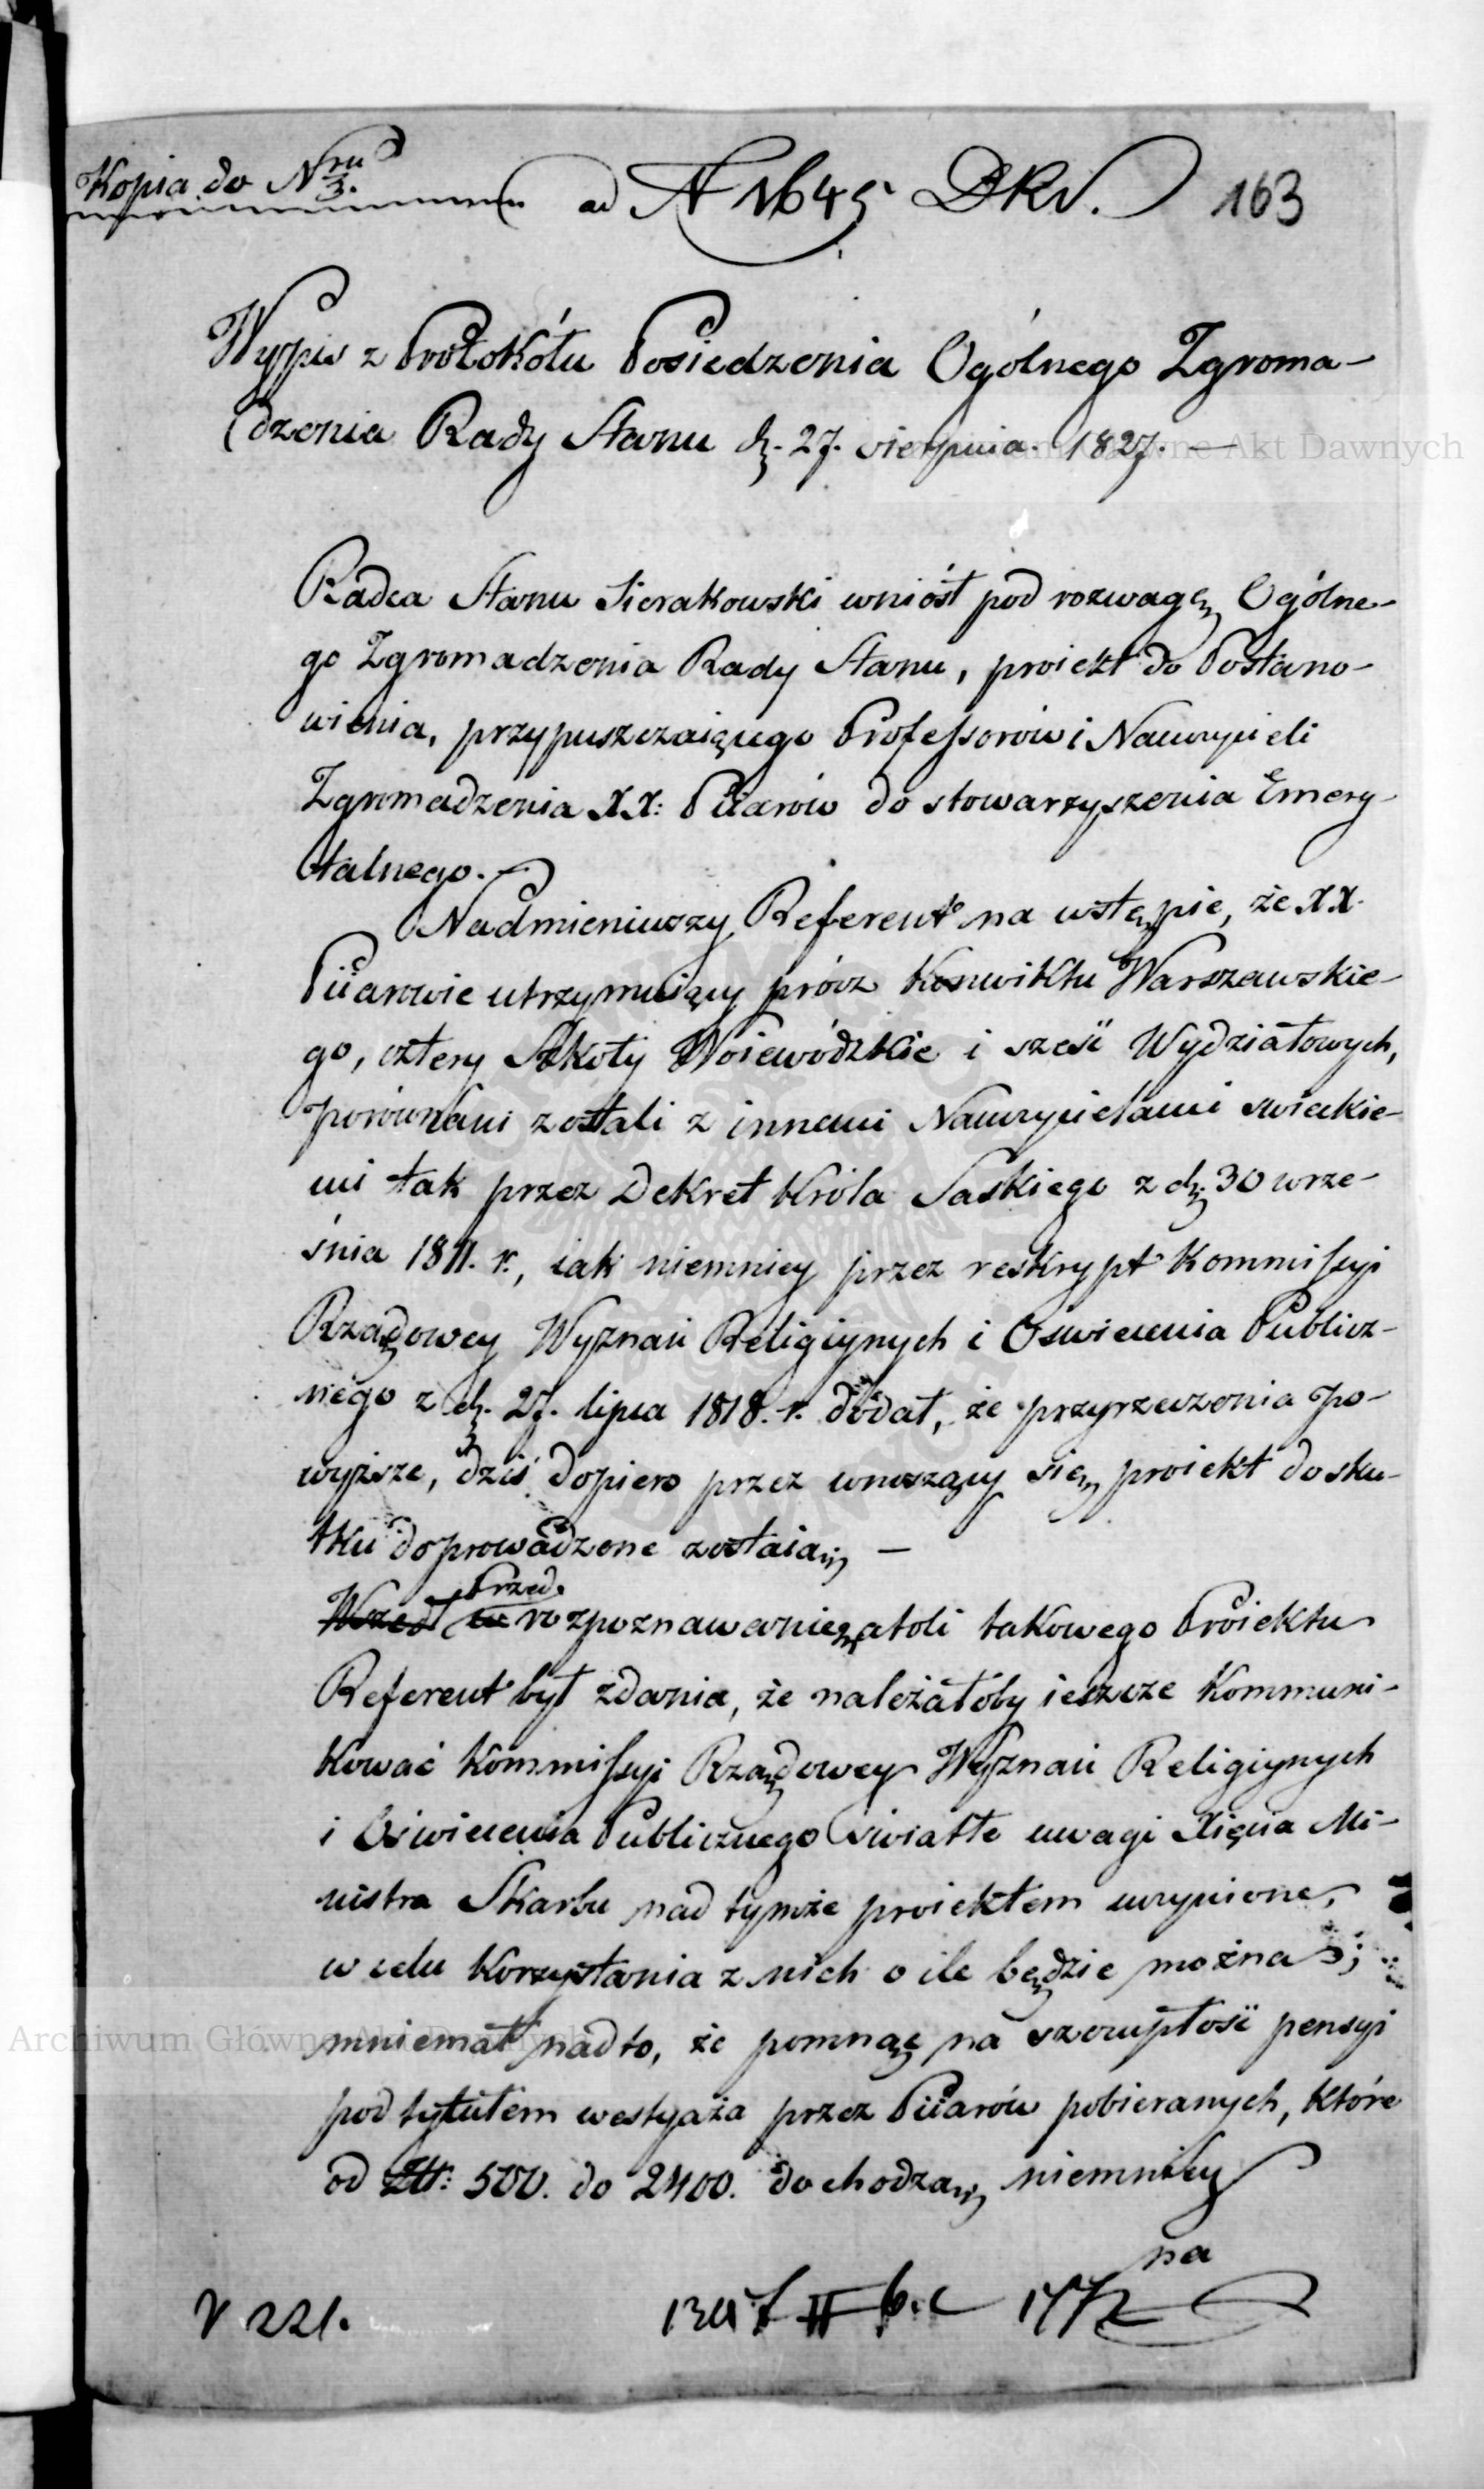 Kopia do Nru 3.
ad N 1645 DKN. 163
Wypis z Protokółu Posiedzenia Ogólnego Zgroma-
dzenia Rady Stanu d. 27. sierpnia 1827. —
Radca Stanu Sierakowski wniósł pod rozwagę Ogólne-
go Zgromadzenia Rady Stanu, proiekt do Postano-
wienia, przypuszczaiącego Professorów i Nauczycieli
Zgromadzenia XX: Piiarów do stowarzyszenia Emery-
talnego. —
Nadmieniwszy Referent na wstępie, że XX.
Piiarowie utrzymuiący prócz Konwiktu Warszawskie-
go, cztery Szkoły Woiewódzkie i sześć Wydziałowych,
porównani zostali z innemi Nauczycielami świeckie-
mi tak przez Dekret Króla Saskiego z d. 30 wrze-
śnia 1811. r., iak niemniey przez reskrypt Kommissyi
Rządowey Wyznań Religiynych i Oświecenia Publicz-
nego z d. 27. lipca 1818. r. dodał, że przyrzeczenia po-
wyższe, dziś dopiero przez wnoszący się proiekt do sku-
tku doprowadzone zostaią —
Przed
Wszedł w rozpoznawanie atoli takowego Proiektu
Referent był zdania, że należałoby ieszcze kommuni-
kować Kommissyi Rządowey Wyznań Religiynych
i Oświecenia Publicznego światłe uwagi Xięcia Mi-
nistra Skarbu nad tymże proiektem uczynione,
w celu korzystania z nich o ile będzie można;
mniemał nadto, że pomnąc na szczupłość pensyi
pod tytułem westyaża przez Piiarów pobieranych, które
od Złt: 500. do 2400. dochodzą, niemniey
na
V 221.
Archiwum Główne Akt Dawnych
Archiwum Główne Akt Dawnych